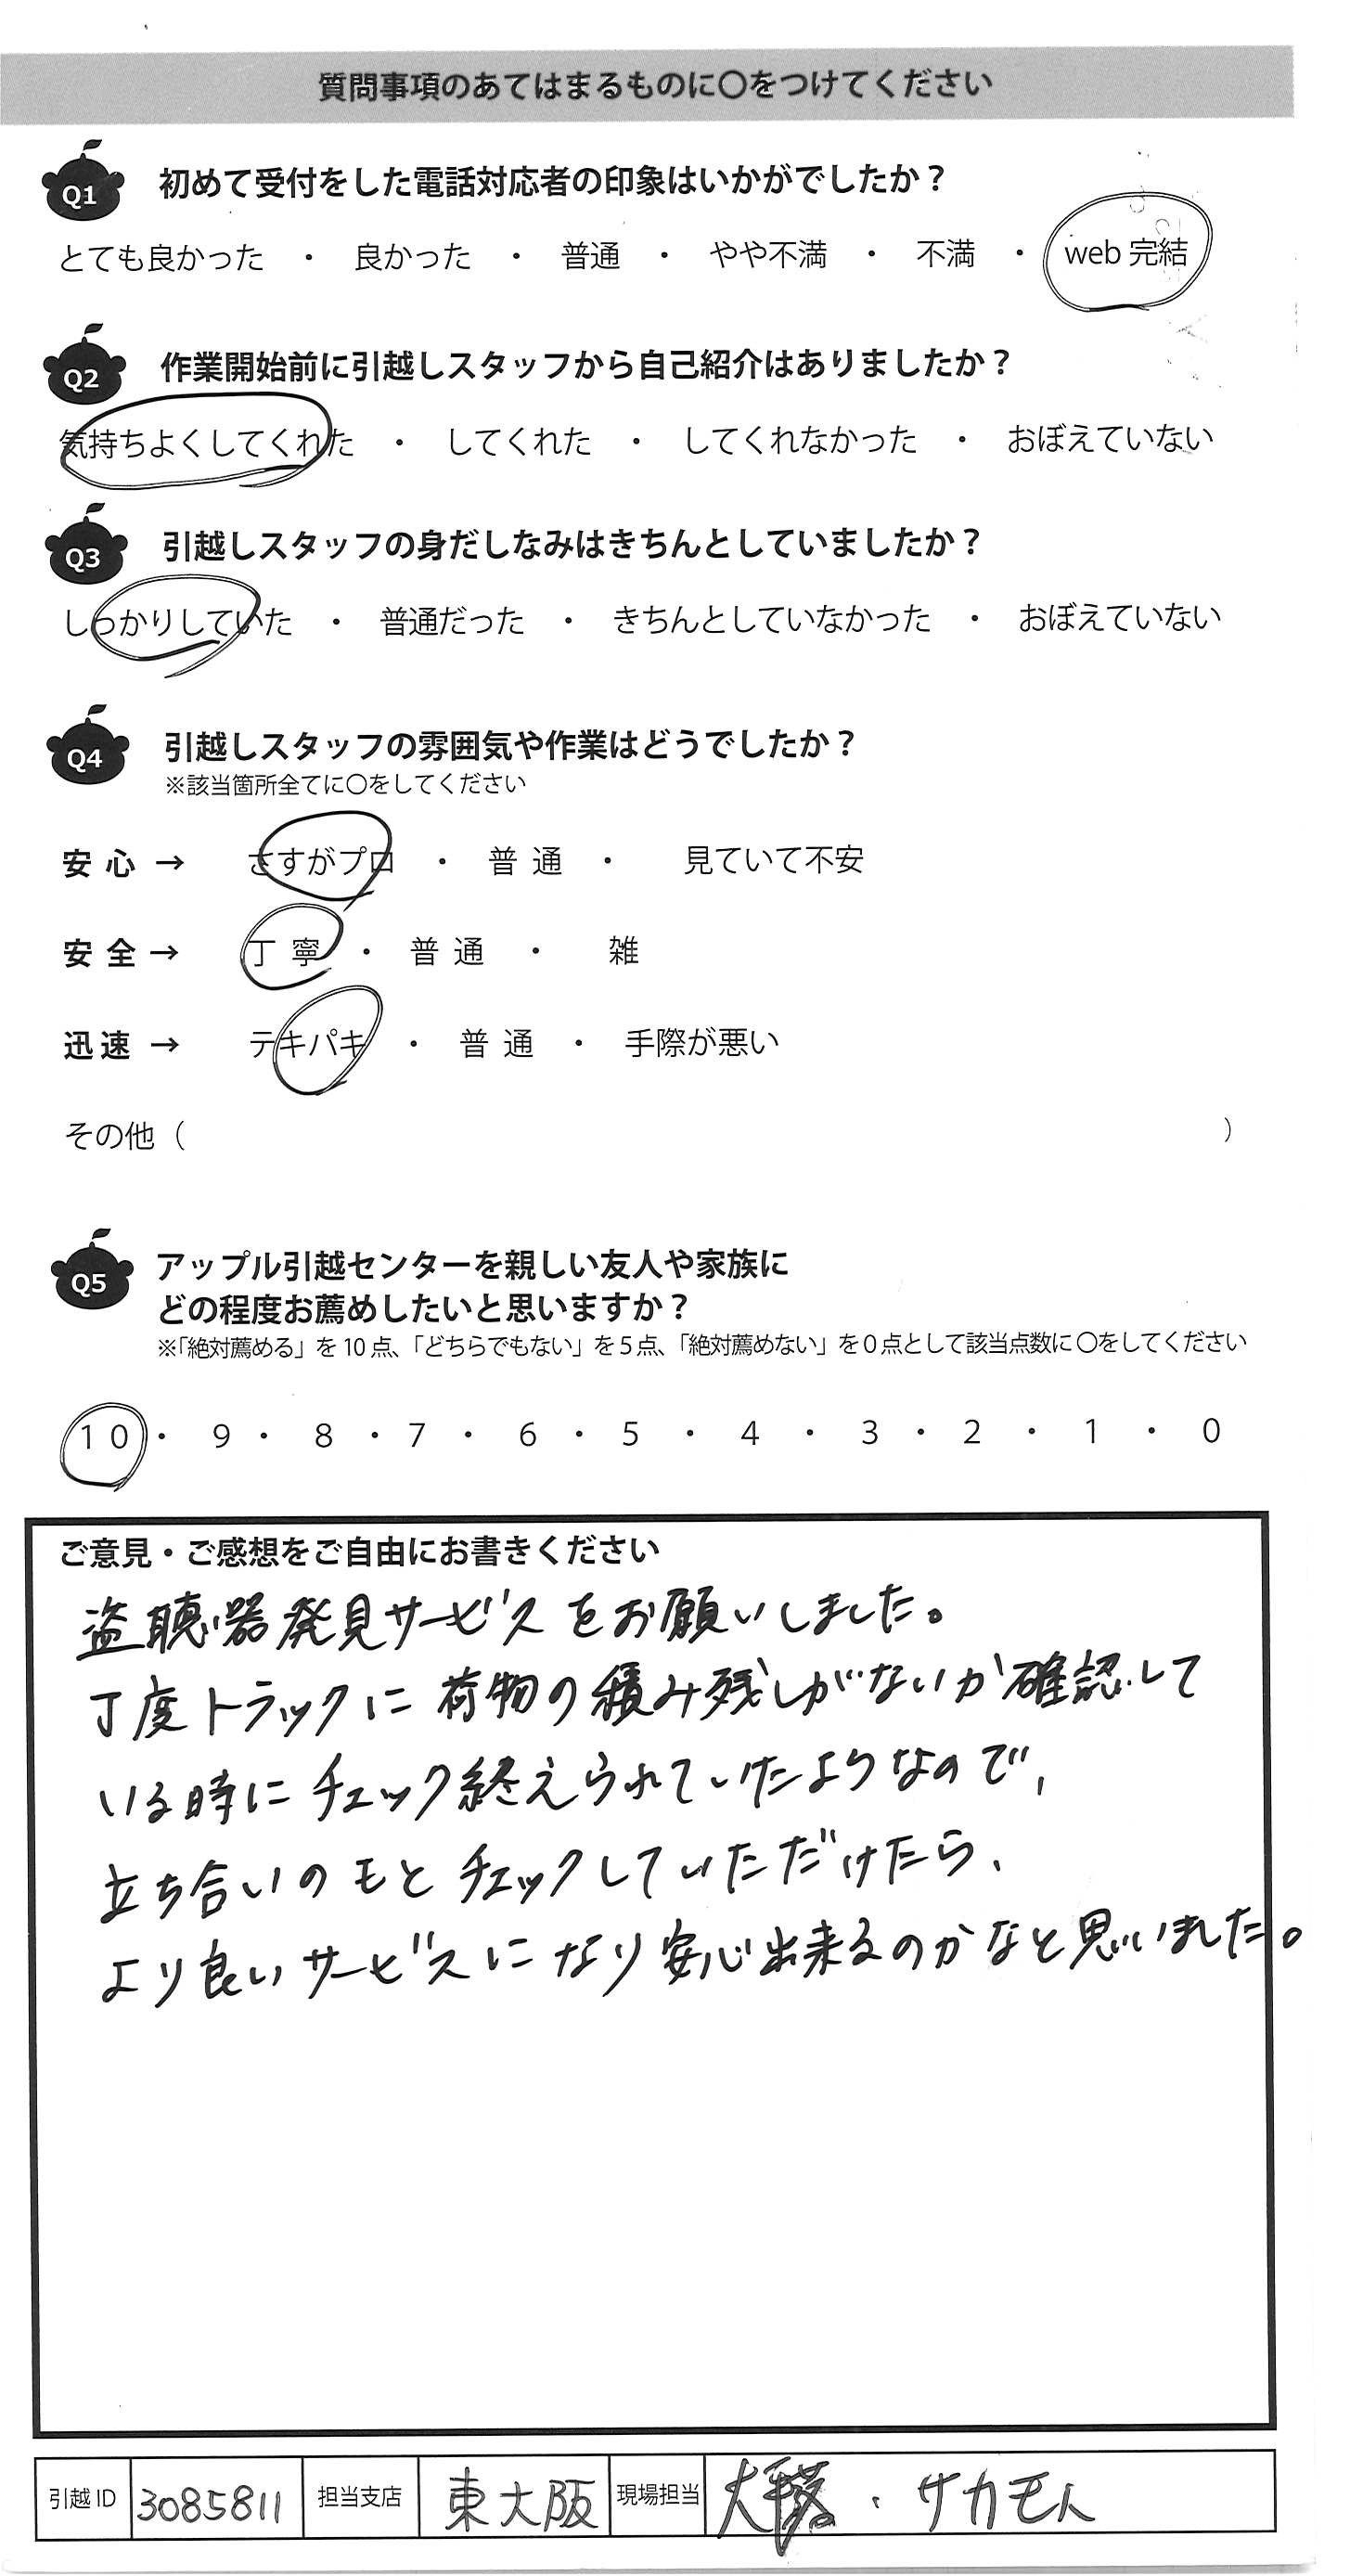 質問事項のあてはまるものに〇をつけてください
Q1 初めて受付をした電話対応者の印象はいかがでしたか？
とても良かった ・ 良かった ・ 普通 ・ やや不満 ・ 不満 ・ web 完結
Q2 作業開始前に引越しスタッフから自己紹介はありましたか？
気持ちよくしてくれた ・ してくれた ・ してくれなかった ・ おぼえていない
Q3 引越しスタッフの身だしなみはきちんとしていましたか？
しっかりしていた ・ 普通だった ・ きちんとしていなかった ・ おぼえていない
Q4 引越しスタッフの雰囲気や作業はどうでしたか？
※該当箇所全てに〇をしてください
安心 → さすがプロ ・ 普通 ・ 見ていて不安
安全 → 丁寧 ・ 普通 ・ 雑
迅速 → テキパキ ・ 普通 ・ 手際が悪い
その他（ ）
Q5 アップル引越センターを親しい友人や家族に
どの程度お薦めしたいと思いますか？
※「絶対薦める」を 10 点、「どちらでもない」を 5 点、「絶対薦めない」を 0 点として該当点数に〇をしてください
10 ・ 9 ・ 8 ・ 7 ・ 6 ・ 5 ・ 4 ・ 3 ・ 2 ・ 1 ・ 0
ご意見・ご感想をご自由にお書きください
盗聴器発見サービスをお願いしました。
丁度トラックに荷物の積み残しがないか確認して
いる時にチェック終えられていたようなので、
立ち合いのもとチェックしていただけたら、
より良いサービスになり安心出来るのかなと思いました。
引越 ID 3085811 担当支店 東大阪 現場担当 ・サカモト